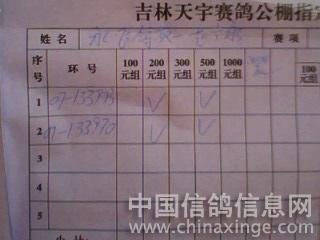 吉林天宇赛鸽公棚指定
姓名 赛项
序号 环号 100元组 200元组 300元组 500元组 1000元组 100元组
1 07-133993 V V
2 07-133970 V V
3
4
5
中国信鸽信息网
www.chinaxinge.com